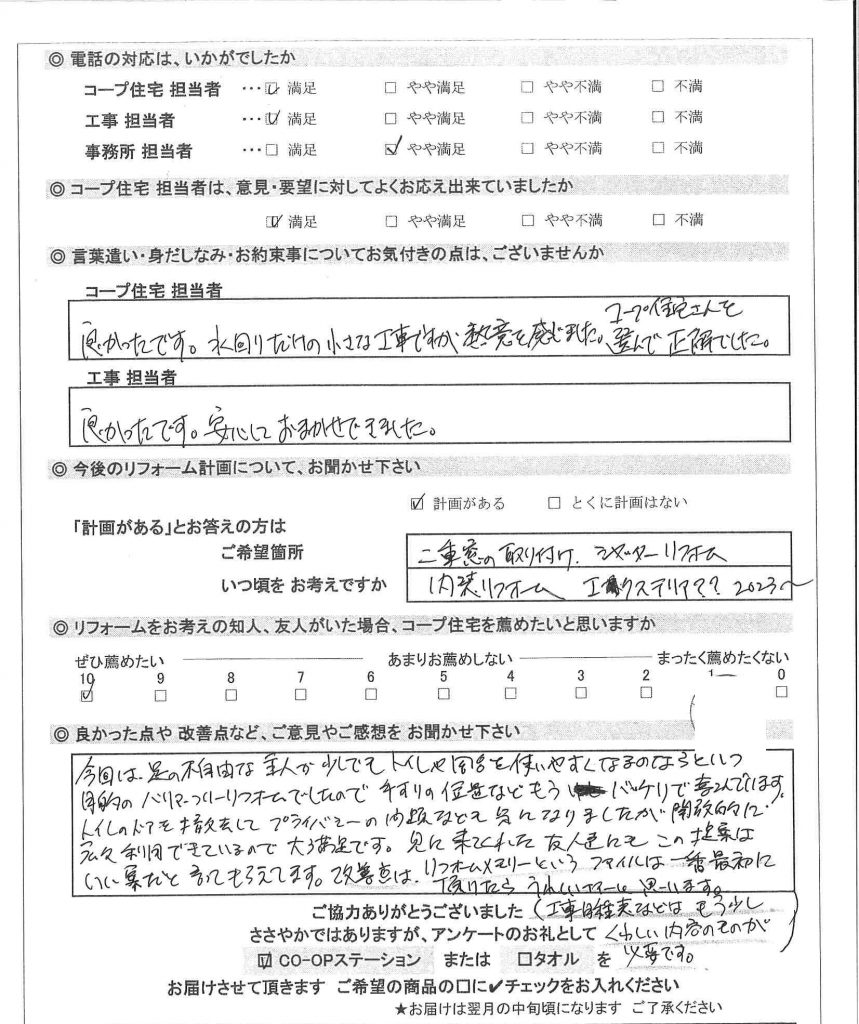 ◎ 電話の対応は、いかがでしたか
コープ住宅 担当者 …☑ 満足 □ やや満足 □ やや不満 □ 不満
工事 担当者 …☑ 満足 □ やや満足 □ やや不満 □ 不満
事務所 担当者 …□ 満足 ☑ やや満足 □ やや不満 □ 不満
◎ コープ住宅 担当者は、意見・要望に対してよくお応え出来ていましたか
☑ 満足 □ やや満足 □ やや不満 □ 不満
◎ 言葉遣い・身だしなみ・お約束事についてお気付きの点は、ございませんか
コープ住宅 担当者
コープ住宅さんを
良かったです。水回りだけの小さな工事ですが 熱意を感じました。選んで正解でした。
工事 担当者
良かったです。安心して おまかせできました。
◎ 今後のリフォーム計画について、お聞かせ下さい
☑ 計画がある □ とくに計画はない
「計画がある」とお答えの方は
ご希望箇所 二重窓の取り付け. シャッターリフォーム
いつ頃を お考えですか 内装リフォーム エクステリア?? 2023〜
◎ リフォームをお考えの知人、友人がいた場合、コープ住宅を薦めたいと思いますか
ぜひ薦めたい あまりお薦めしない まったく薦めたくない
10 9 8 7 6 5 4 3 2 1 0
☑ □ □ □ □ □ □ □ □ □
◎ 良かった点や 改善点など、ご意見やご感想を お聞かせ下さい
今回は、足の不自由な主人が少しでもトイレや風呂を使いやすくなるのならという
目的の バリアフリーリフォームでしたので 手すりの位置などもう バッチリで喜んでいます。
トイレのドアを撤去して プライバシーの問題なども気になりましたが 開放的に
広々利用できているので 大満足です。見に来てくれた友人達にも この提案は
いい案だと 言ってもらえてます。改善点は、リフォームメモリーという ファイルは一番最初に
頂けたら うれしいなーと思います。
ご協力ありがとうございました (工事日程表などは もう少し
ささやかではありますが、アンケートのお礼として くわしい内容のものが
☑ CO-OPステーション または □タオル を 必要です。)
お届けさせて頂きます ご希望の商品の□に✔チェックをお入れください
★お届けは翌月の中旬頃になります ご了承ください